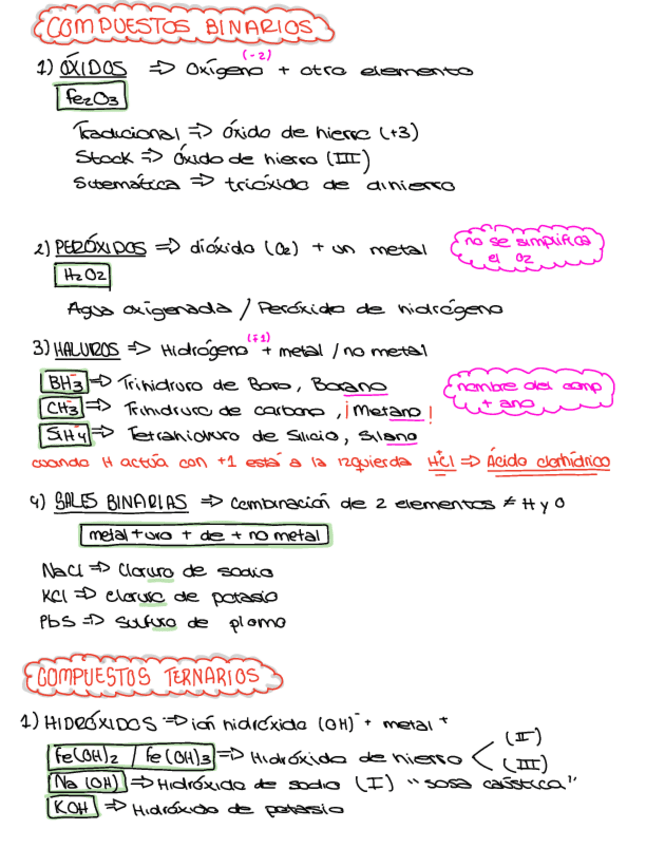 COMPUESTOS BINARIOS
1) ÓXIDOS => Oxígeno (-2) + otro elemento
Fe2O3
Tradicional => óxido de hierro (+3)
Stock => óxido de hierro (III)
Sistemática => trióxido de dihierro
2) PERÓXIDOS => dióxido (O2) + un metal
no se simplifica
el O2
H2O2
Agua oxigenada / Peróxido de hidrógeno
3) HALUROS => Hidrógeno (±1) + metal / no metal
BH3 => Trihidruro de Boro, Borano
CH3 => Trihidruro de carbono, ¡Metano!
SiH4 => Tetrahidruro de Silicio, Silano
nombre del comp
+ ano
cuando H actúa con +1 está a la izquierda HCl => Ácido clorhídrico
4) SALES BINARIAS => Combinación de 2 elementos ≠ H y O
metal + uro + de + no metal
NaCl => Cloruro de sodio
KCl => cloruro de potasio
PbS => Sulfuro de plomo
COMPUESTOS TERNARIOS
1) HIDRÓXIDOS => ión hidróxido (OH)⁻ + metal +
Fe(OH)2 / Fe(OH)3 => Hidróxido de hierro < (II) (III)
Na (OH) => Hidróxido de sodio (I) "sosa caústica"
KOH => Hidróxido de potasio